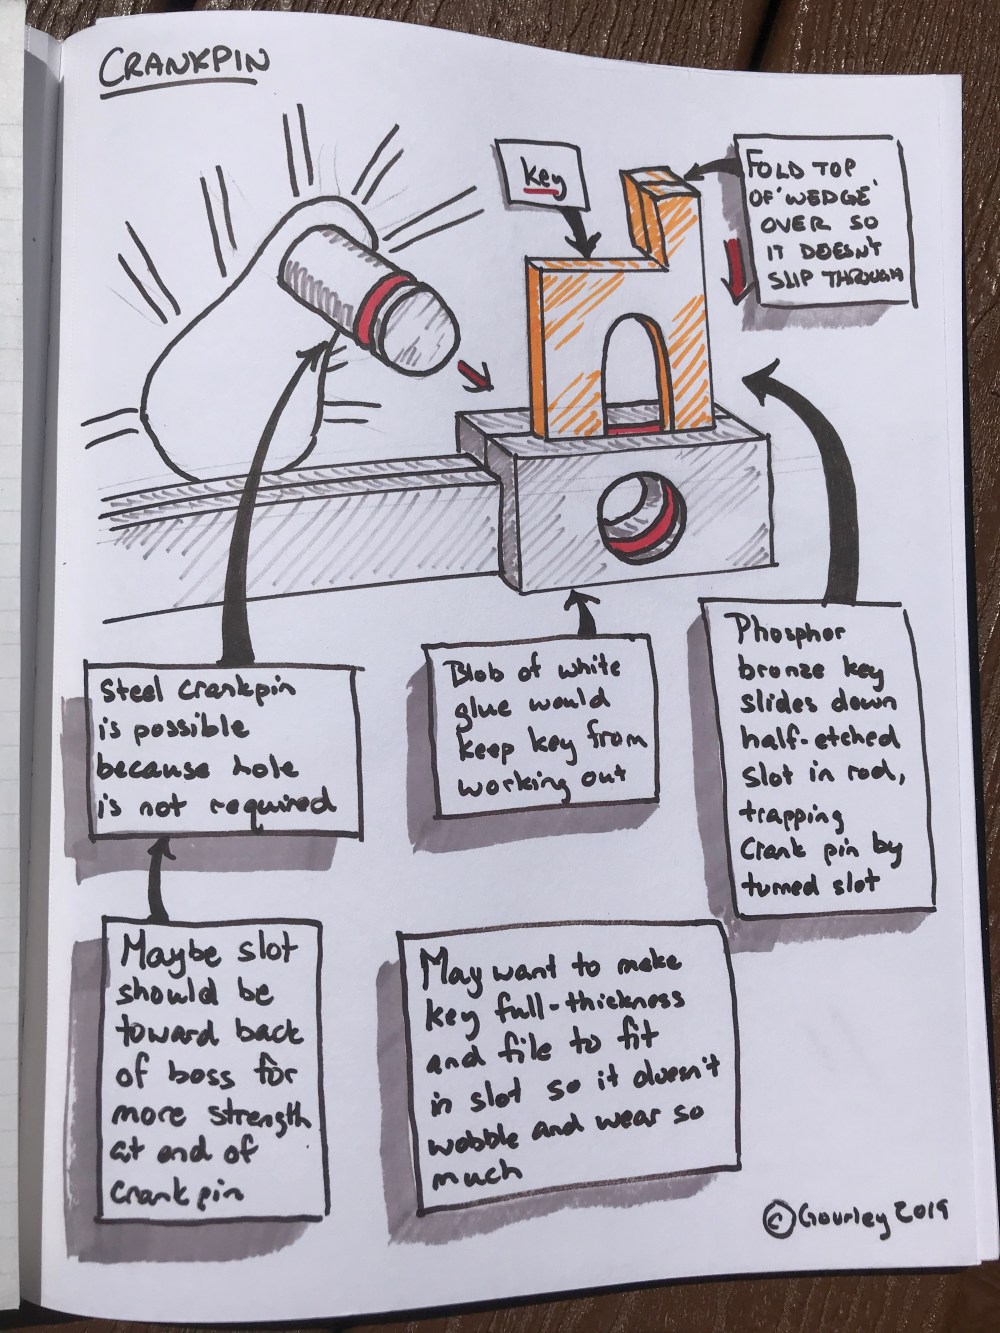 CRANKPIN
key
FOLD TOP
OF 'WEDGE'
OVER SO
IT DOESN'T
SLIP THROUGH
Steel crankpin
is possible
because hole
is not required
Blob of white
glue would
keep key from
working out
Phosphor
bronze key
slides down
half-etched
slot in rod,
trapping
crank pin by
turned slot
Maybe slot
should be
toward back
of boss for
more strength
at end of
crankpin
May want to make
key full-thickness
and file to fit
in slot so it doesn't
wobble and wear so
much
© Gourley 2019